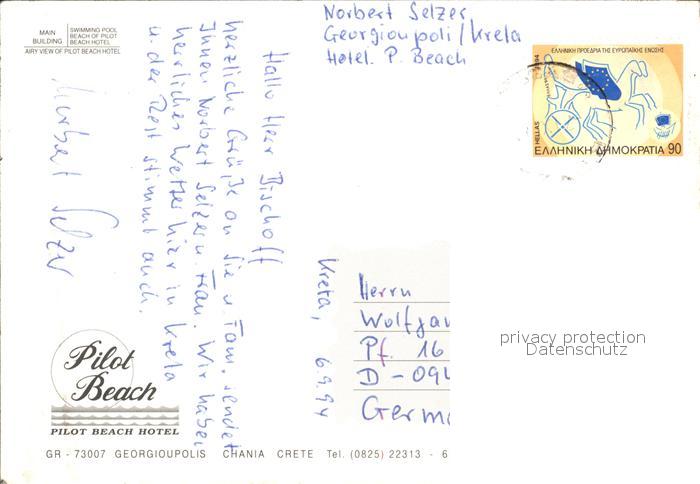 MAIN
BUILDING
SWIMMING POOL
BEACH OF PILOT
BEACH HOTEL
AIRY VIEW OF PILOT BEACH HOTEL
Norbert Selzer
Georgioupoli / Kreta
Hotel. P. Beach
ΕΛΛΗΝΙΚΗ ΠΡΟΕΔΡΙΑ ΤΗΣ ΕΥΡΩΠΑΪΚΗΣ ΕΝΩΣΗΣ
1994
HELLAS
ΕΛΛΗΝΙΚΗ ΔΗΜΟΚΡΑΤΙΑ 90
Hallo Herr Bischoff
herzliche Grüße an Sie u. Fam. sendet
Ihnen Norbert Selzer u. Frau. Wir haben
herrliches Wetter hier in Kreta
u. der Rest stimmt auch.
Norbert Selzer
Kreta, 6.9.94
Herrn
Wolfgan
Pf. 16
D - 094
Germa
privacy protection
Datenschutz
Pilot
Beach
PILOT BEACH HOTEL
GR - 73007 GEORGIOUPOLIS CHANIA CRETE Tel. (0825) 22313 - 6